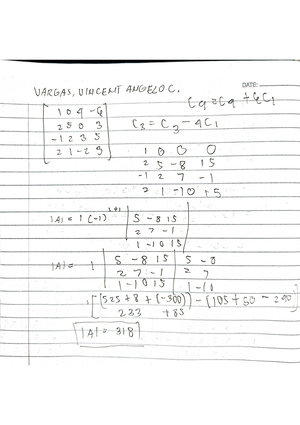 VARGAS, VINCENT ANGELO C.
DATE:
C4 = C4 + 6C1
C3 = C3 - 4C1
1 0 4 -6
2 5 0 3
-1 2 3 5
2 1 -2 3
1 0 0 0
2 5 -8 15
-1 2 7 -1
2 1 -10 +5
|A| = 1 (-1)¹⁺¹
5 -8 15
2 7 -1
1 -10 15
|A| = 1
5 -8 15 5 -8
2 7 -1 2 7
1 -10 15 1 -10
[525 + 8 + (-300)] - [105 + 50 - 240]
233 + 85
|A| = 318